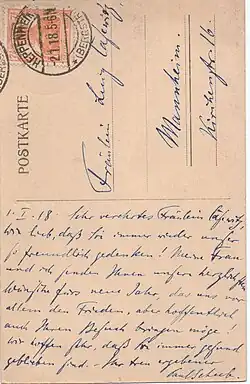 HEPPENHEIM
2.1.18. 5-6N
(BERGSTR.)
POSTKARTE
Fräulein
Mannheim.
1. I. 18. Sehr verehrtes Fräulein
wie lieb, daß Sie immer wieder unser
so freundlich gedenken! Meine Frau
und ich senden Ihnen unsere herzlichsten
Wünsche fürs neue Jahr, das uns vor
allem den Frieden, aber hoffentlich
auch Ihren Besuch bringen möge!
Wir hoffen sehr, daß Sie immer gesund
geblieben sind. Ihr treu ergebener